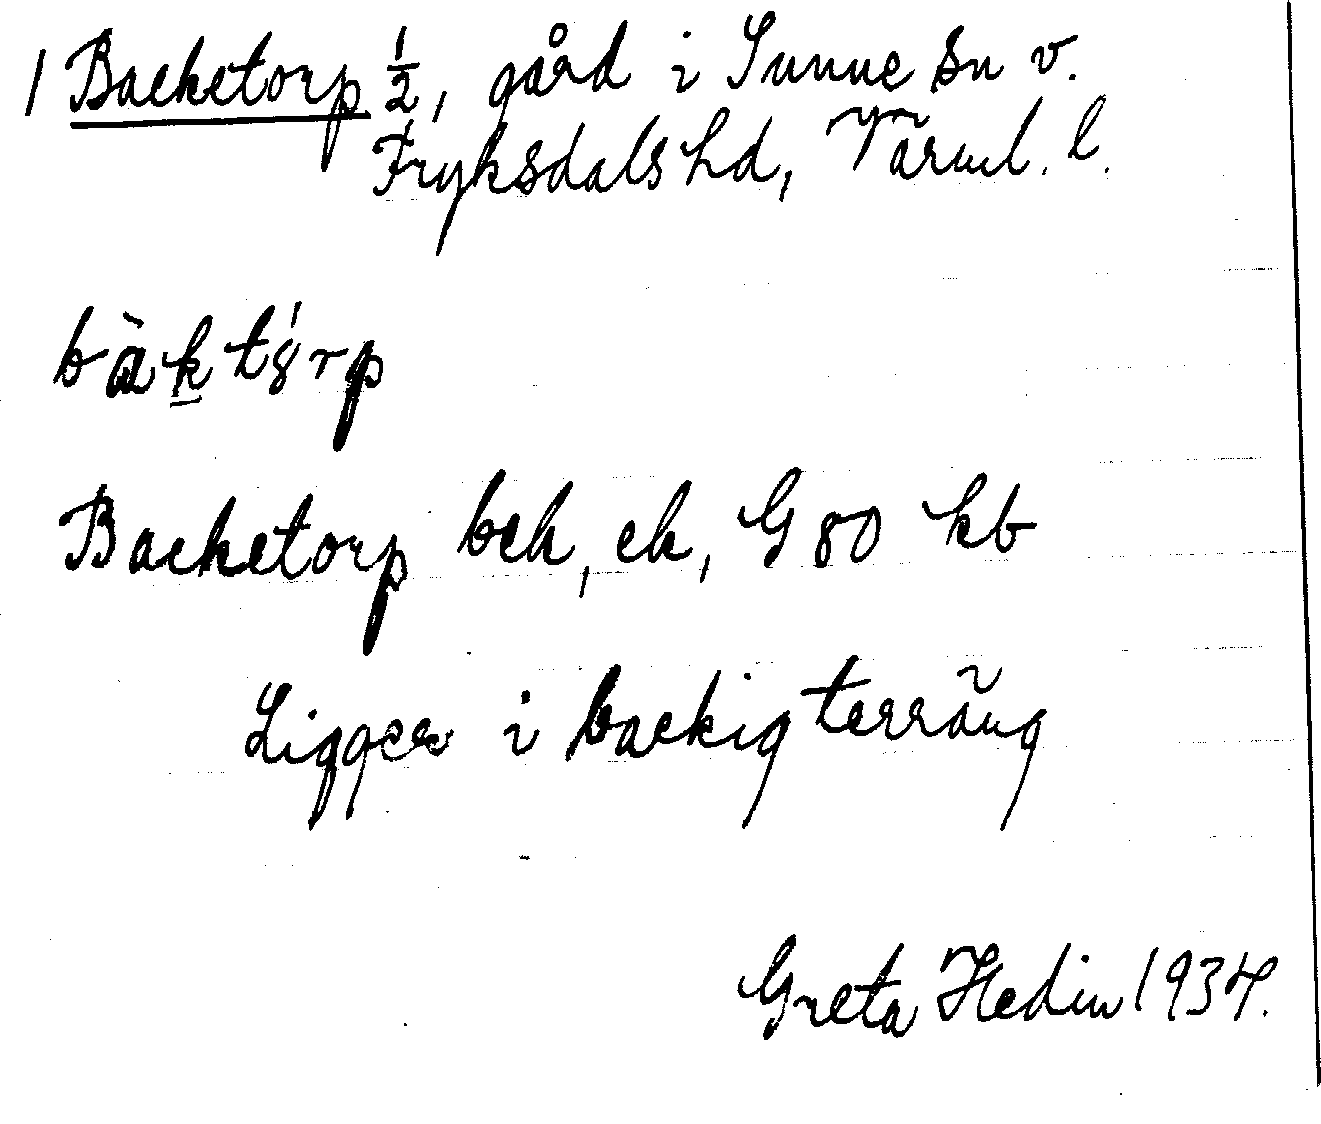 1 Backetorp ½, gård i Sunne sn v.
Fryksdals hd, Värml. l.
bàk̲tór̀p
Backetorp bek, ek, G 80 kb
Ligger i backig terräng
Greta Hedin 1934.